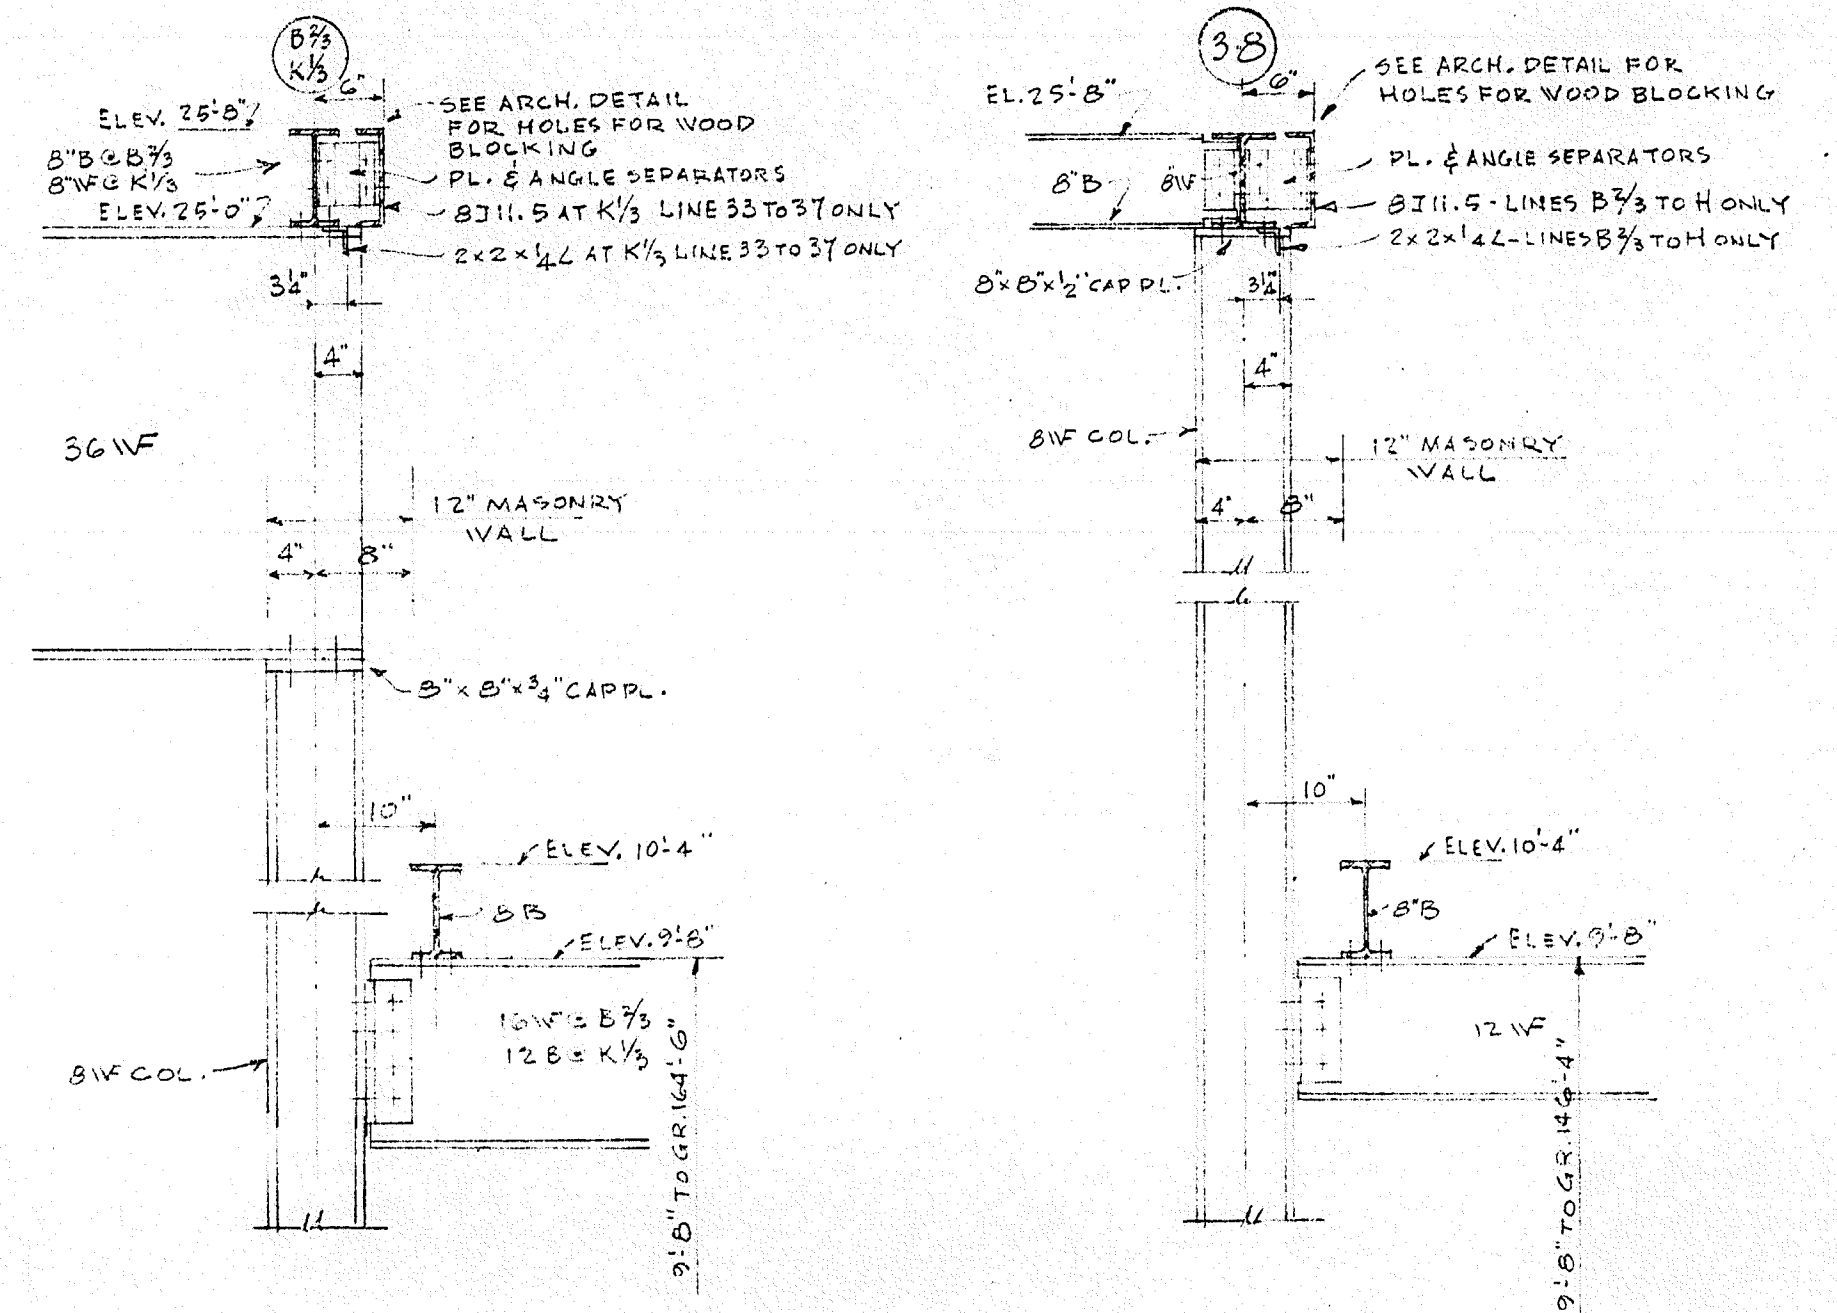 B⅔
K⅓
6"
ELEV. 25'-8"
SEE ARCH. DETAIL
FOR HOLES FOR WOOD
BLOCKING
8"B @ B⅔
8"WF @ K⅓
PL. & ANGLE SEPARATORS
ELEV. 25'-0"
8][11.5 AT K⅓ LINE 33 TO 37 ONLY
2x2x¼∠ AT K⅓ LINE 33 TO 37 ONLY
3¼"
4"
36 WF
12" MASONRY
WALL
4" 8"
8"x8"x¾" CAP PL.
10"
ELEV. 10'-4"
8B
ELEV. 9'-8"
16 WF @ B⅔
12 B @ K⅓
8WF COL.
9'-8" TO GR. 164'-6"
3-8
6"
SEE ARCH. DETAIL FOR
HOLES FOR WOOD BLOCKING
EL. 25'-8"
PL. & ANGLE SEPARATORS
8"B 8WF
8][11.5 - LINES B⅔ TO H ONLY
2x2x¼∠ - LINES B⅔ TO H ONLY
8"x8"x½" CAP PL.
3¼"
4"
8WF COL.
12" MASONRY
WALL
4" 8"
10"
ELEV. 10'-4"
8"B
ELEV. 9'-8"
12 WF
9'-8" TO GR. 146'-4"